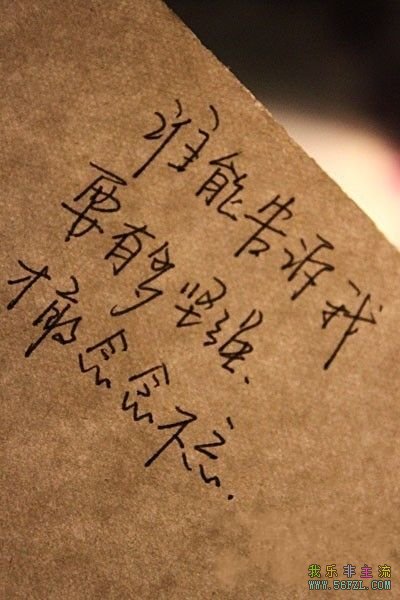 谁能告诉我
要有多坚强.
才敢念念不忘.
我乐非主流
WWW.56FZL.COM